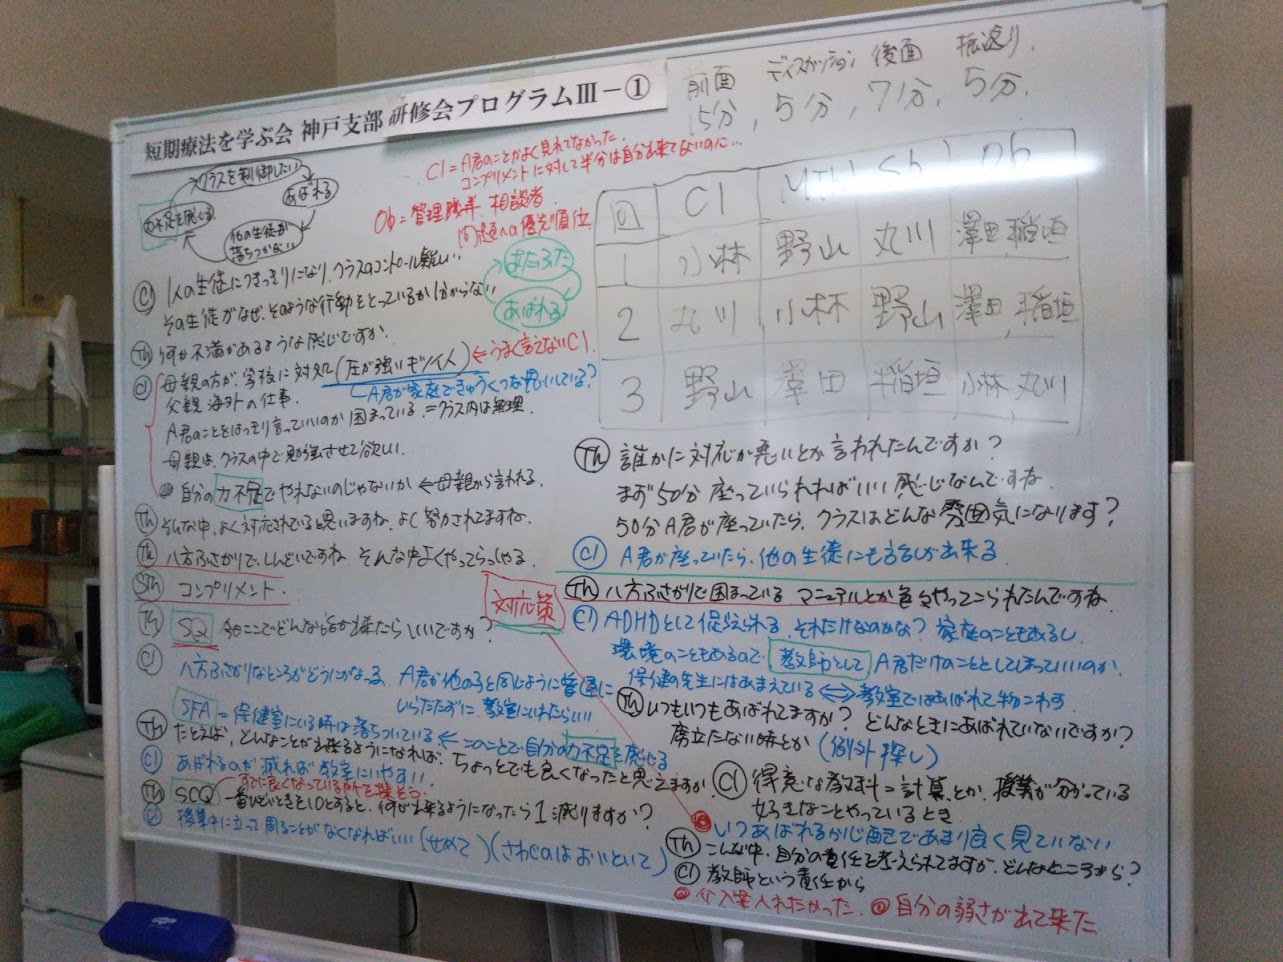 短期療法を学ぶ会 神戸支部 研修会プログラムⅢ－①
前面 ディスカッション 後面 振返り
5分, 5分, 7分, 5分.
クラスを制御したい
あばれる
他の生徒が落ちつかない
力不足を感じる
Cl = A君のことがよく見れてなかった.
コンプリメントに対して半分は自分も来てないのに…
Ob = 管理職業、相談者
問題への優先順位
はたふた
あばれる
回 Cl Mth Sth Ob
1 小林 野山 丸川 澤田, 稲垣
2 丸川 小林 野山 澤田, 稲垣
3 野山 澤田 稲垣 小林 丸川
Cl 1人の生徒につきっきりになり, クラスのコントロール難しい..
その生徒がなぜ、そのような行動をとっているか分からない
Th 何か不満があるような感じですか.
Cl 母親の方が, 学校に対処 (圧が強いギンイ人) ← うまく言えないCl
父親 海外の仕事. A君が家庭できゅうくつな思いしている?
A君のことをはっきり言っていいのか 困まっている. = クラス内は無理.
母親は、クラスの中で勉強させて欲しい.
自分の力不足でやれないのじゃないか ← 母親から言われる.
Th そんな中, よく対応されていると思いますね. よく努力されてますね.
Th 八方ふさがりで, しんどいですね そんな中よくやってらっしゃる.
Sth コンプリメント.
対応策
Th SQ 今ここでどんな話が来たらいいですか?
Cl 八方ふさがりなところがどうにかなる. A君が他の子と同じように普通に
いらだたずに、教室にいれたらいい
SFA = 保健室にいる時は落ちついている ← このことで自分の力不足を感じる
Th たとえば, どんなことが出来るようになれば, ちょっとでも良くなったと思えますか
Cl あばれるのが減れば教室にいやす!!
すでに良くなっている所を捜そう.
Th SCQ 一番ひどいときを10とすると, 何が出来るようになったら1減りますか?
Cl 授業中に立って周ることがなくなればいい (せめて) (さわじのはおいといて)
Th 誰かに対応が悪いとか言われたんですか?
まず50分 座っていられればいい感じなんですね.
50分A君が座っていたら, クラスはどんな雰囲気になります?
Cl A君が座っていたら, 他の生徒にも話しが出来る
Th 八方ふさがりで困まっている マニュアルとか色々やってこられたんですね.
Cl ADHDとして促えられる. それだけなのかな? 家庭のこともあるし
環境のこともあるので, 教師として A君だけのこととしてしまっていいのか.
保健の先生にはあまえている ⇔ 教室ではあばれて物こわす
Th いつもいつもあばれてますか? どんなときにあばれていないですか?
席立たない時とか (例外探し)
Cl 得意な教科 = 計算とか, 授業が分かっている
好きなことやっているとき
いつあばれるか心配であまり良く見ていない
Th こんな中, 自分の責任を考えられてますが, どんなところから?
Cl 教師という責任から
介入案入れたかった. 自分の弱さが出て来た